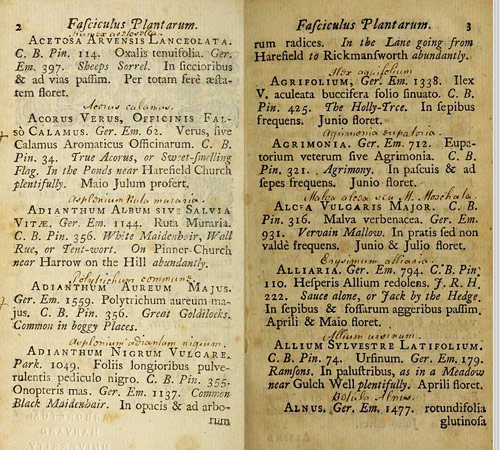 2 Faſciculus Plantarum.
Rumex acetosella.
ACETOSA ARVENSIS LANCEOLATA.
C. B. Pin. 114. Oxalis tenuifolia. Ger.
Em. 397. Sheeps Sorrel. In ſiccioribus
& ad vias paſſim. Per totam ferè æſta-
tem floret.
Acorus calamus.
ACORUS VERUS, OFFICINIS FAL-
SÒ CALAMUS. Ger. Em. 62. Verus, ſive
Calamus Aromaticus Officinarum. C. B.
Pin. 34. True Acorus, or Sweet-ſmelling
Flag. In the Ponds near Harefield Church
plentifully. Maio Julum profert.
Asplenium Ruta muraria.
ADIANTHUM ALBUM SIVE SALVIA
VITÆ. Ger. Em. 1144. Ruta Muraria.
C. B. Pin. 356. White Maidenhair, Wall
Rue, or Tent-wort. On Pinner-Church
near Harrow on the Hill abundantly.
Polytrichum commune.
ADIANTHUM AUREUM MAJUS.
Ger. Em. 1559. Polytrichum aureum ma-
jus. C. B. Pin. 356. Great Goldilocks.
Common in boggy Places.
Asplenium adiantum nigrum.
ADIANTHUM NIGRUM VULGARE.
Park. 1049. Foliis longioribus pulve-
rulentis pediculo nigro. C. B. Pin. 355.
Onopteris mas. Ger. Em. 1137. Common
Black Maidenhair. In opacis & ad arbo-
rum
Faſciculus Plantarum. 3
rum radices. In the Lane going from
Harefield to Rickmanſworth abundantly.
Ilex aquifolium
AGRIFOLIUM, Ger. Em. 1338. Ilex
V. aculeata buccifera folio ſinuato. C. B.
Pin. 425. The Holly-Tree. In ſepibus
frequens. Junio floret.
Agrimonia eupatoria.
AGRIMONIA. Ger. Em. 712. Eupa-
torium veterum ſive Agrimonia. C. B.
Pin. 321. Agrimony. In paſcuis & ad
ſepes frequens. Junio floret.
Malva alcea seu M. Moschata
ALCEA VULGARIS MAJOR. C. B.
Pin. 316. Malva verbenacea. Ger. Em.
931. Vervain Mallow. In pratis ſed non
valdè frequens. Junio & Julio floret.
Erysimum alliaria.
ALLIARIA. Ger. Em. 794. C. B. Pin.
110. Heſperis Allium redolens. J. R. H.
222. Sauce alone, or Jack by the Hedge.
In ſepibus & foſſarum aggeribus paſſim.
Aprili & Maio floret.
Allium ursinum.
ALLIUM SYLVESTRE LATIFOLIUM.
C. B. Pin. 74. Urſinum. Ger. Em. 179.
Ramſons. In paluſtribus, as in a Meadow
near Gulch Well plentifully. Aprili floret.
Betula Alnus.
ALNUS. Ger. Em. 1477. rotundifolia
glutinoſa